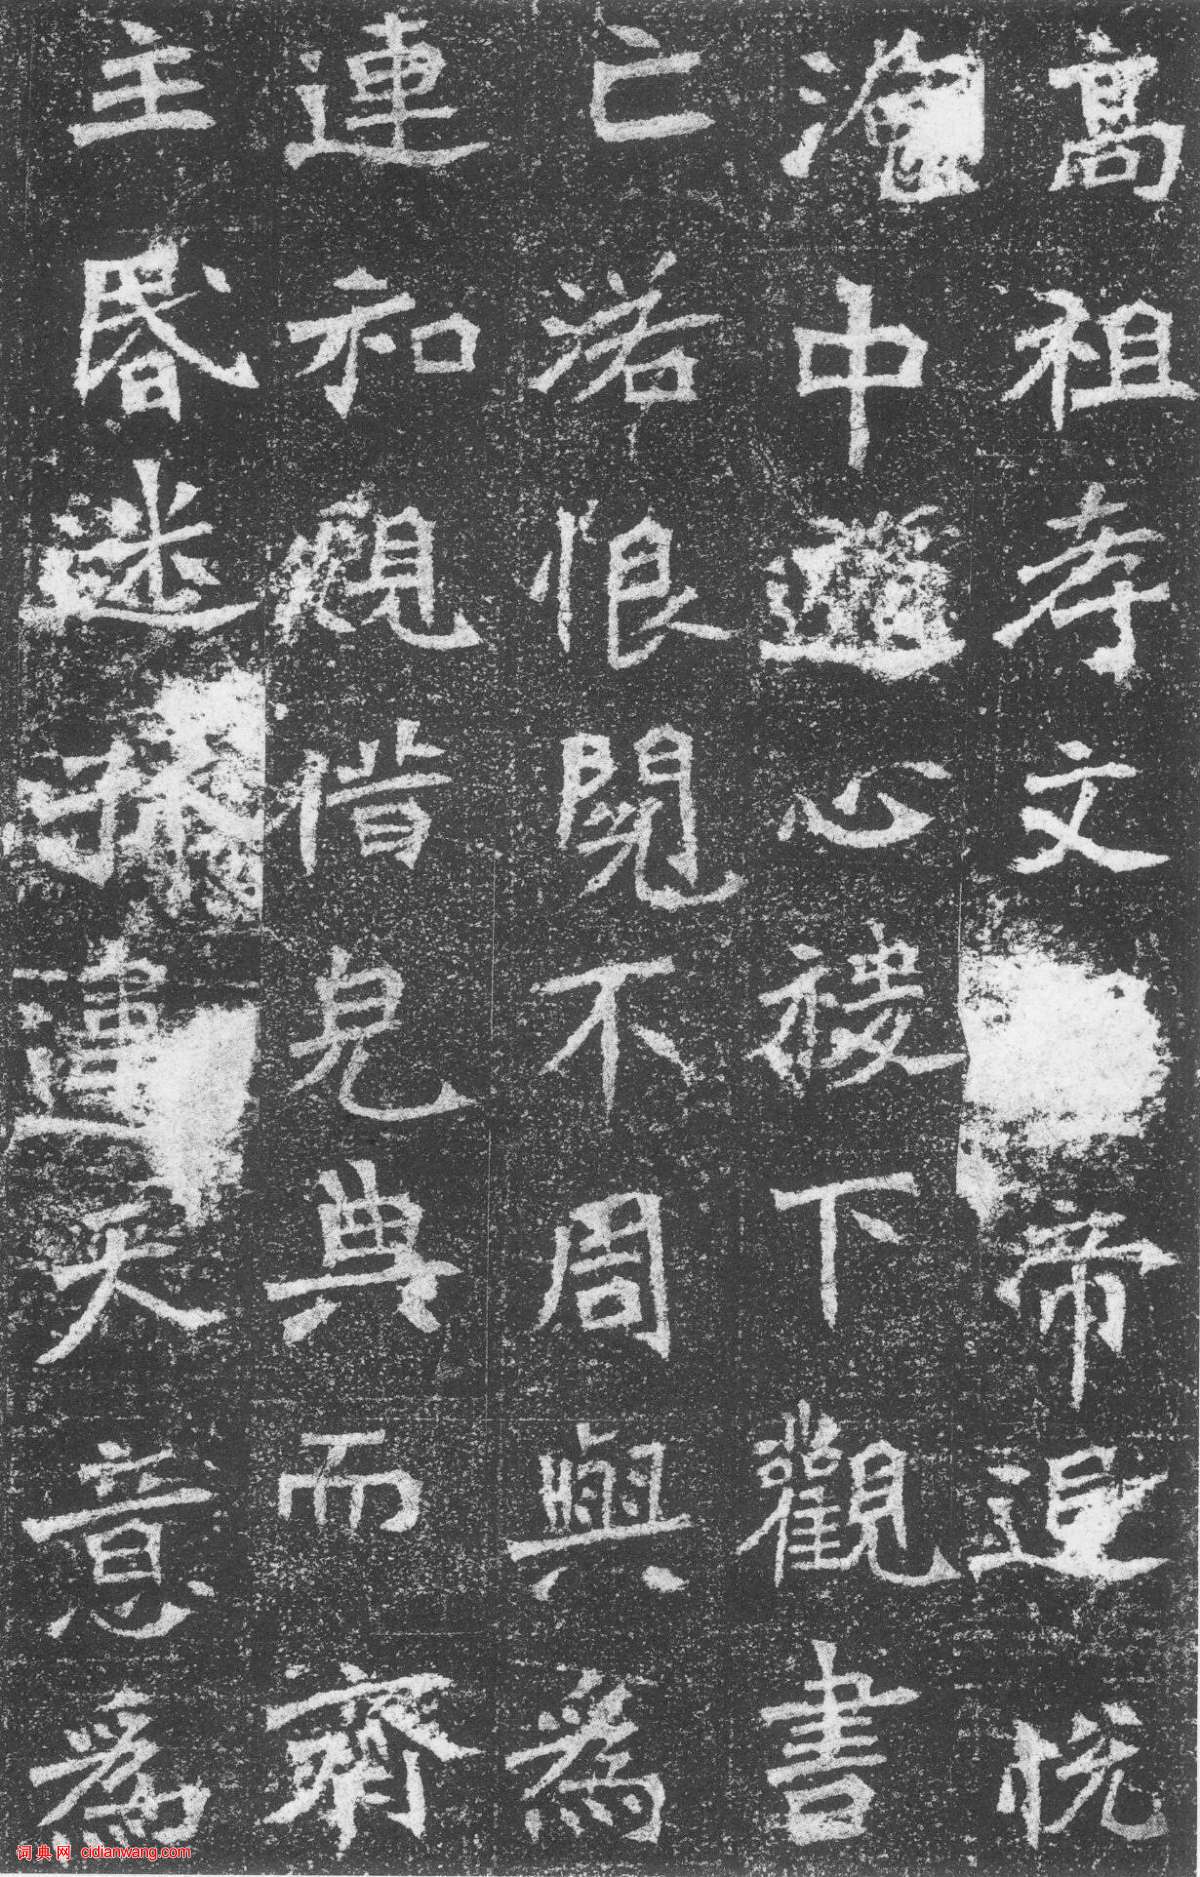 高祖孝文帝追悦
淹中遊心稷下觀書
亡落恨閱不周與為
連和規借見典而齊
主昬迷孤違天意為
词典网 cidianwang.com